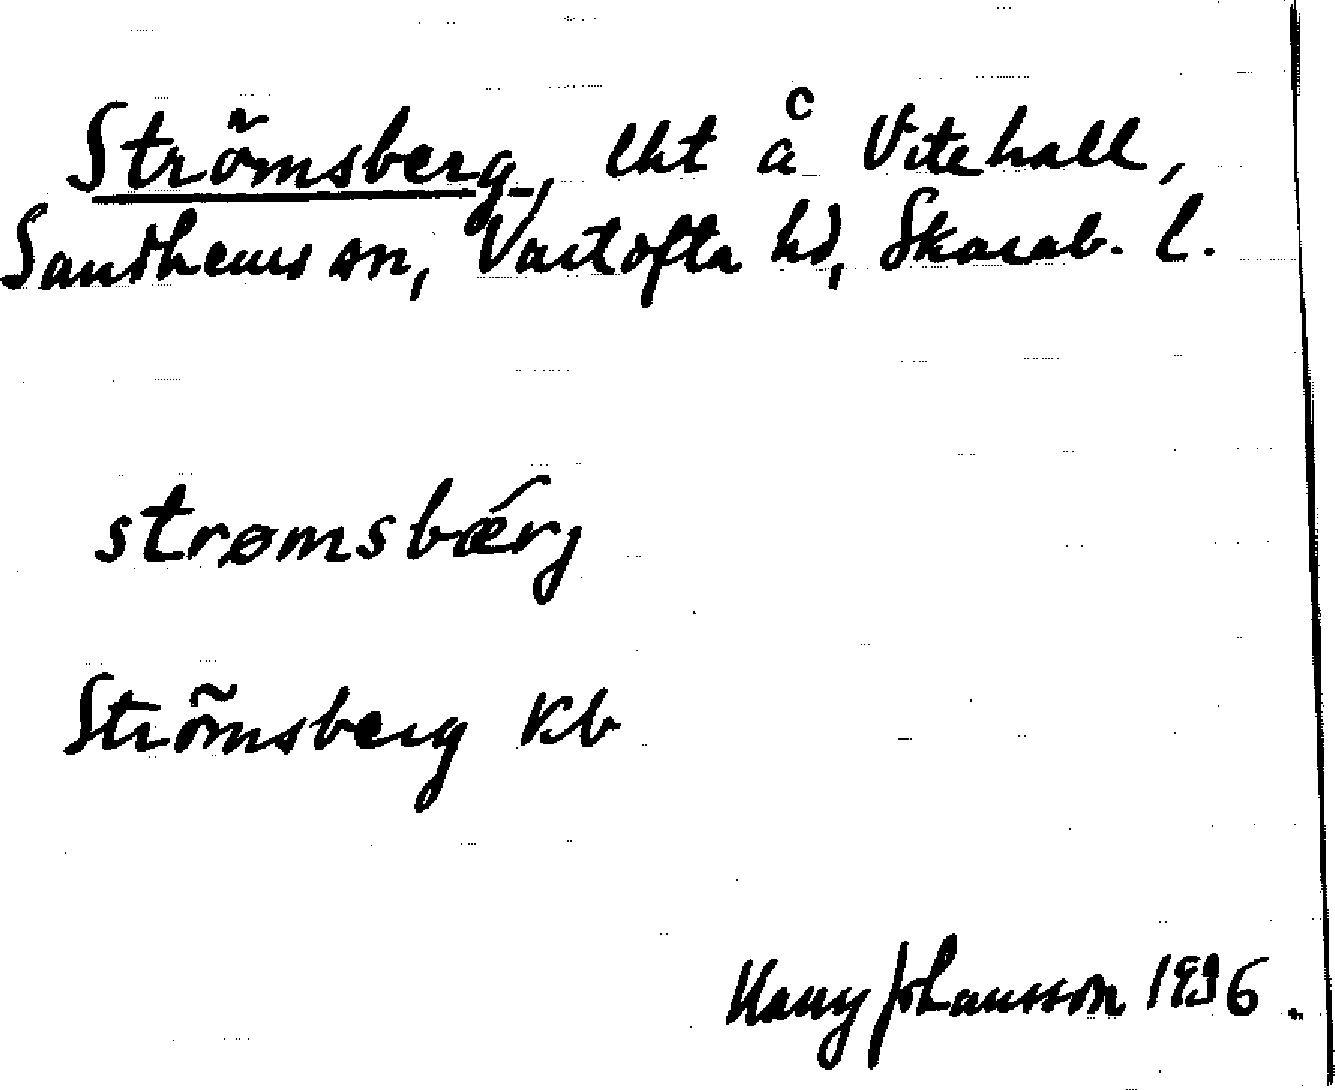 Strömsberg, lht å Vitehall,
Sandhems sn, Vartofta hd, Skarab. l.
strømsbǽrj
Strömsberg Kb
Harry Johansson 1936.